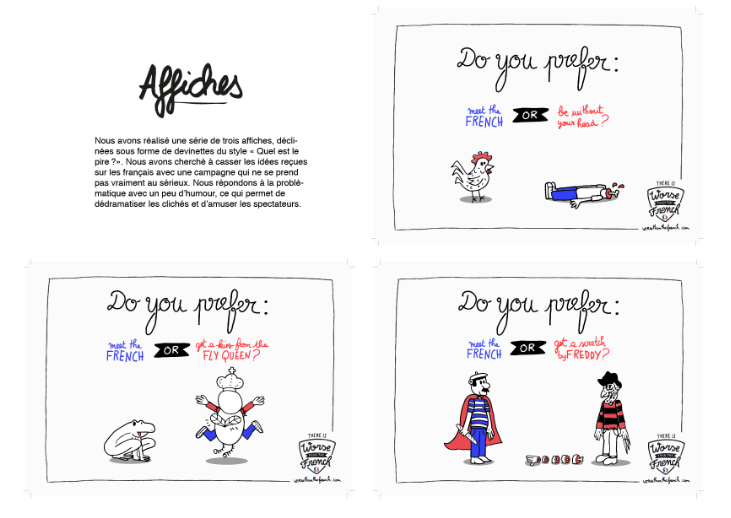 Affiches
Nous avons réalisé une série de trois affiches, décli-
nées sous forme de devinettes du style « Quel est le
pire ?». Nous avons cherché à casser les idées reçues
sur les français avec une campagne qui ne se prend
pas vraiment au sérieux. Nous répondons à la problé-
matique avec un peu d'humour, ce qui permet de
dédramatiser les clichés et d'amuser les spectateurs.
Do you prefer:
meet the
FRENCH
OR
be without
your head ?
THERE IS
Worse
than the
French
worsethanthefrench.com
Do you prefer:
meet the
FRENCH
OR
get a kiss from the
FLY QUEEN ?
THERE IS
Worse
than the
French
worsethanthefrench.com
Do you prefer:
meet the
FRENCH
OR
get a scratch
by FREDDY ?
THERE IS
Worse
than the
French
worsethanthefrench.com